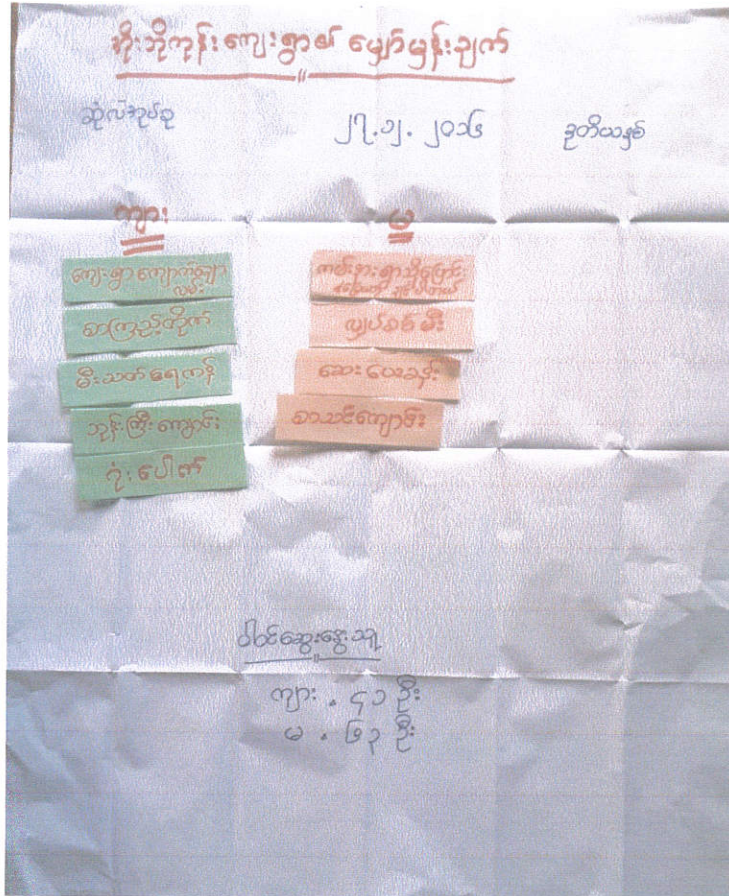 အိုးဘိုကုန်းကျေးရွာ၏ မျှော်မှန်းချက်
ဆုံလ်အုပ်စု ၂၇.၁၂.၂၀၁၆ ဒုတိယနှစ်
ကျား
ကျေးရွာကျောက်ချော
လမ်း
စာကြည့်တိုက်
မီးသတ်ရေကန်
ဘုန်းကြီးကျောင်း
ဂုံးပေါက်
မ
ကမ်းနားရွာသို့ပြောင်း
လျှပ်စစ်မီး
ဆေးပေးခန်း
စာသင်ကျောင်း
ပါဝင်ဆွေးနွေးသူ
ကျား . ၄၁ ဦး
မ . ၆၃ ဦး